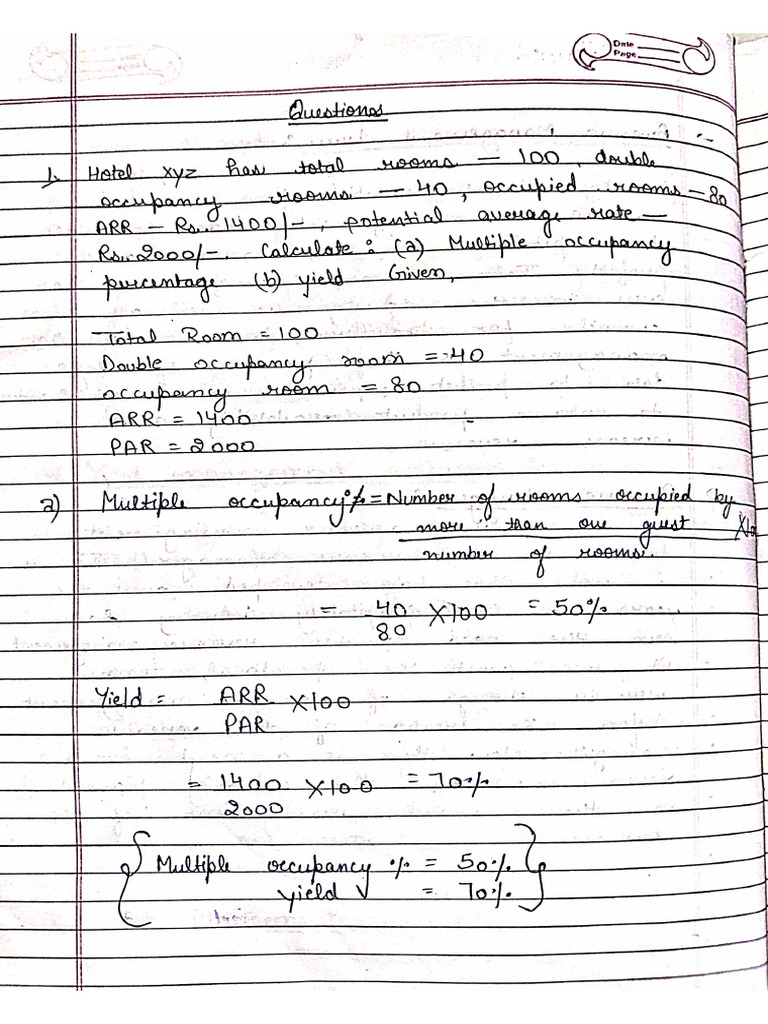 Date
Page
Questions
1. Hotel xyz has total rooms — 100, double
occupancy rooms — 40, occupied rooms — 80
ARR — Rs. 1400/-, potential average rate —
Rs. 2000/-. Calculate : (a) Multiple occupancy
percentage (b) yield Given,
Total Room = 100
Double occupancy room = 40
occupancy room = 80
ARR = 1400
PAR = 2000
a) Multiple occupancy % = Number of rooms occupied by
more than one guest
number of rooms.
= 40 X100 = 50%
80
Yield = ARR X100
PAR
= 1400 X100 = 70%
2000
{ Multiple occupancy % = 50% }
yield = 70%